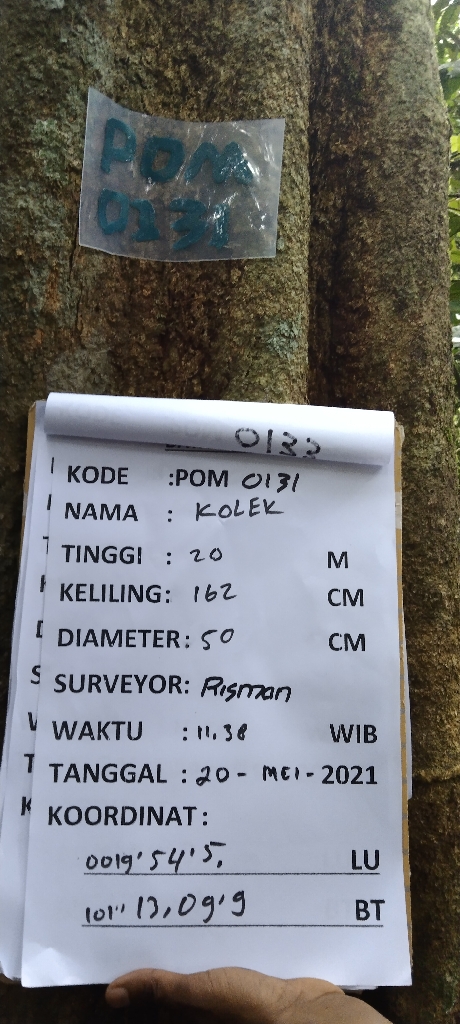 POM
0131
0133
KODE :POM 0131
NAMA : KOLEK
TINGGI : 20 M
KELILING: 162 CM
DIAMETER: 50 CM
SURVEYOR: Risman
WAKTU : 11.38 WIB
TANGGAL : 20 - MEI - 2021
KOORDINAT:
0019'54'5, LU
101" 13,09'9 BT